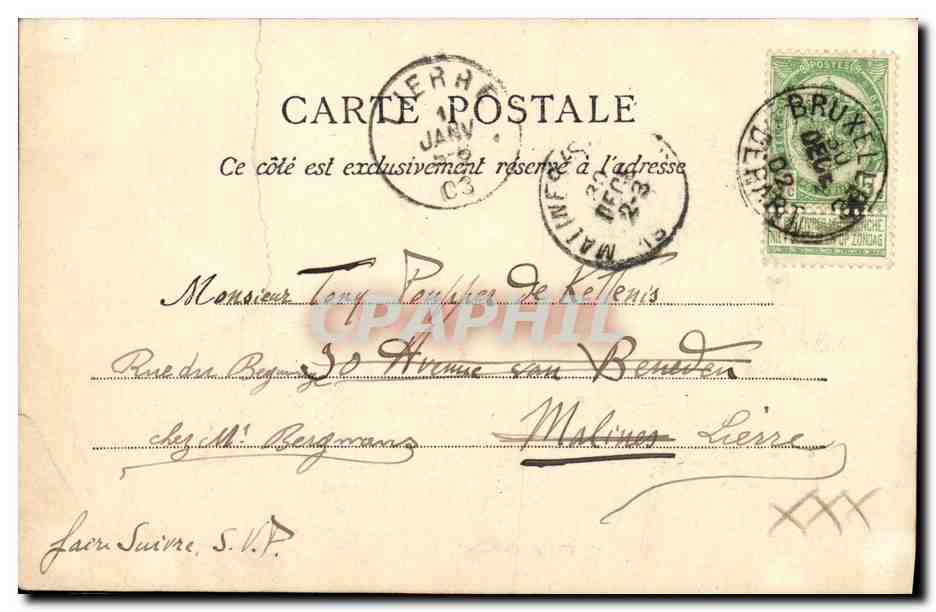 CARTE POSTALE
Ce côté est exclusivement réservé à l'adresse
LIERRE
1
JANV
03
MALINES
30
DEC
2-3
POSTES
BRUXELLES
30
DECE
02
DEPART
NIET BESTELLEN OP ZONDAG
Monsieur Tony Pouppez de Kettenis
CPAPHIL
Rue du 30 Avenue van Beneden
chez Mr. Bergmans Malines Lierre
faire Suivre, S.V.P.
XXX